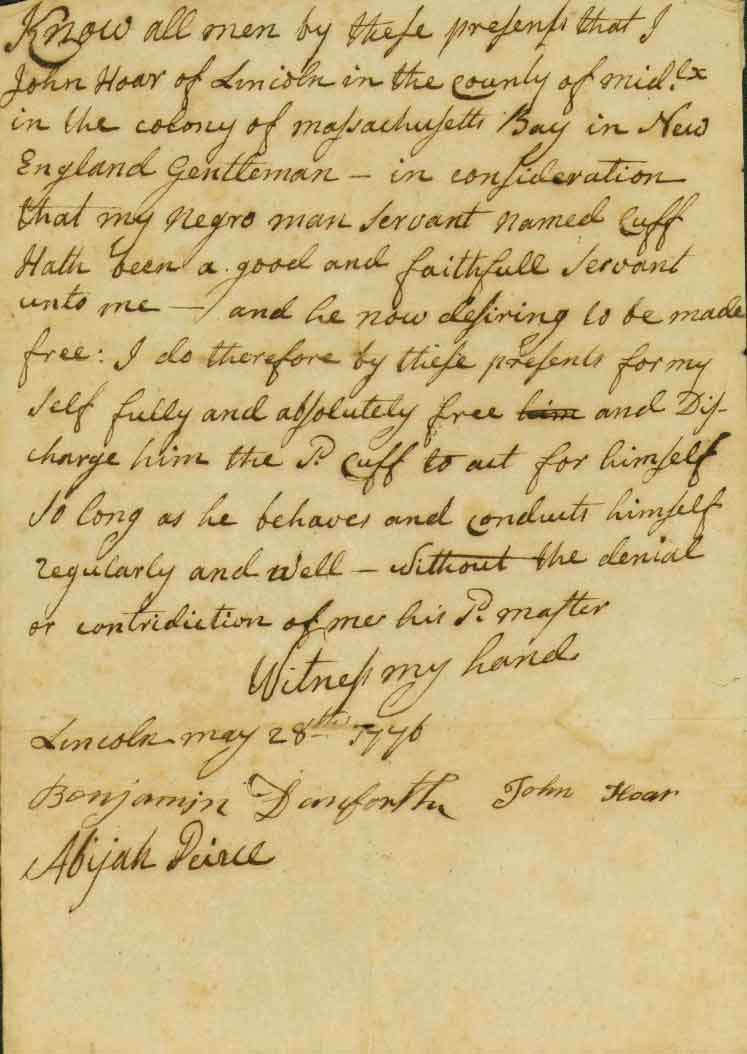 Know all men by these presents that I
John Hoar of Lincoln in the County of mid.ex
in the colony of massachusetts Bay in New
England Gentleman – in consideration
that my negro man servant named Cuff
Hath been a good and faithfull servant
unto me — and he now desiring to be made
free: I do therefore by these presents for my
self fully and absolutely free him and Dis-
charge him the Sd. Cuff to act for himself
so long as he behaves and conducts himself
regularly and well – without the denial
or contridiction of me his Sd. master
Witness my hand
Lincoln may 28th 1776
Benjamin Danforth John Hoar
Abijah Peirce